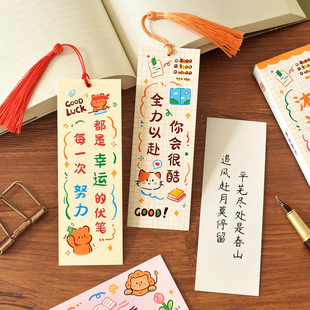 GOOD
LUCK
每一次努力
都是幸运的伏笔
全力以赴
你会很酷
GOOD!
追风赶月莫停留
平芜尽处是春山